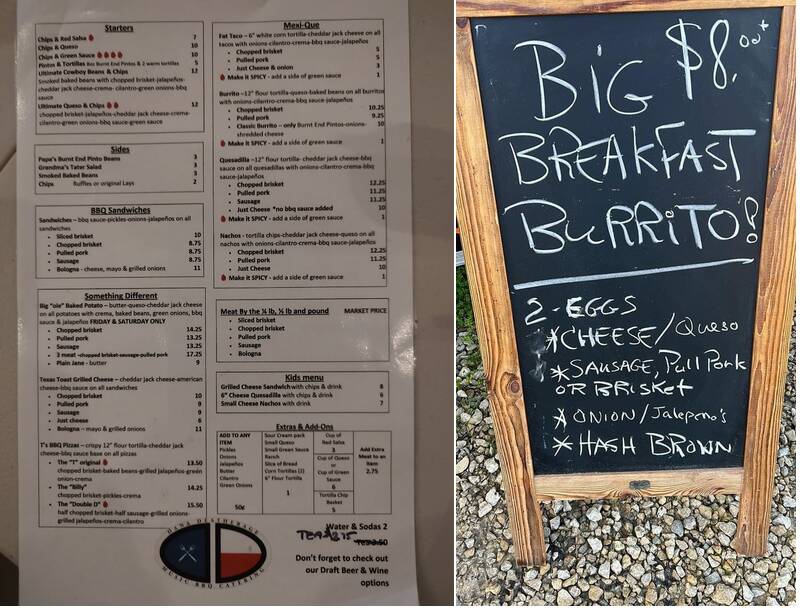 Starters
Chips & Red Salsa 7
Chips & Queso 10
Chips & Green Sauce 10
Pintos & Tortillas 8oz Burnt End Pintos & 2 warm tortillas 5
Ultimate Cowboy Beans & Chips 12
Smoked baked beans with chopped brisket-jalapeños-
cheddar jack cheese-crema- cilantro-green onions-bbq
sauce
Ultimate Queso & Chips 12
chopped brisket-jalapeños-cheddar jack cheese-crema-
cilantro-green onions-bbq sauce-green sauce
Sides
Papa's Burnt End Pinto Beans 3
Grandma's Tater Salad 3
Smoked Baked Beans 3
Chips Ruffles or original Lays 2
BBQ Sandwiches
Sandwiches – bbq sauce-pickles-onions-jalapeños on all
sandwiches
• Sliced brisket 10
• Chopped brisket 8.75
• Pulled pork 8.75
• Sausage 8.75
• Bologna - cheese, mayo & grilled onions 11
Something Different
Big "ole" Baked Potato – butter-queso-cheddar jack cheese
on all potatoes with crema, baked beans, green onions, bbq
sauce & jalapeños FRIDAY & SATURDAY ONLY
• Chopped brisket 14.25
• Pulled pork 13.25
• Sausage 13.25
• 3 meat -chopped brisket-sausage-pulled pork 17.25
• Plain Jane - butter 9
Texas Toast Grilled Cheese – cheddar jack cheese-american
cheese-bbq sauce on all sandwiches
• Chopped brisket 10
• Pulled pork 9
• Sausage 9
• Just cheese 6
• Bologna – mayo & grilled onions 11
T's BBQ Pizzas – crispy 12" flour tortilla-cheddar jack
cheese-bbq sauce base on all pizzas
• The "T" original 13.50
chopped brisket-baked beans-grilled jalapeños-green
onion-crema
• The "Billy" 14.25
chopped brisket-pickles-crema
• The "Double D" 15.50
half chopped brisket-half sausage-grilled onions-
grilled jalapeños-crema-cilantro
Mexi-Que
Fat Taco – 6" white corn tortilla-cheddar jack cheese on all
tacos with onions-cilantro-crema-bbq sauce-jalapeños
• Chopped brisket 5
• Pulled pork 5
• Just Cheese & onion 3
Make it SPICY - add a side of green sauce 1
Burrito –12" flour tortilla-queso-baked beans on all burritos
with onions-cilantro-crema-bbq sauce-jalapeños
• Chopped brisket 10.25
• Pulled pork 9.25
• Classic Burrito – only Burnt End Pintos-onions- 10
shredded cheese
Make it SPICY - add a side of green sauce 1
Quesadilla –12" flour tortilla- cheddar jack cheese-bbq
sauce on all quesadillas with onions-cilantro-crema-bbq
sauce-jalapeños
• Chopped brisket 12.25
• Pulled pork 11.25
• Sausage 11.25
• Just Cheese *no bbq sauce added 10
Make it SPICY - add a side of green sauce 1
Nachos - tortilla chips-cheddar jack cheese-queso on all
nachos with onions-cilantro-crema-bbq sauce-jalapeños
• Chopped brisket 12.25
• Pulled pork 11.25
• Just Cheese 10
Make it SPICY - add a side of green sauce 1
Meat By the ¼ lb, ½ lb and pound MARKET PRICE
• Sliced brisket
• Chopped brisket
• Pulled pork
• Sausage
• Bologna
Kids menu
Grilled Cheese Sandwich with chips & drink 8
6" Cheese Quesadilla with chips & drink 6
Small Cheese Nachos with drink 7
Extras & Add-Ons
ADD TO ANY
ITEM
Pickles
Onions
Jalapeños
Butter
Cilantro
Green Onions
50¢
Sour Cream pack
Small Queso
Small Green Sauce
Ranch
Slice of Bread
Corn Tortillas (2)
6" Flour Tortilla
1
Cup of
Red Salsa
3
Cup of Queso
or
Cup of Green
Sauce
6
Tortilla Chip
Basket
5
Add Extra
Meat to an
Item
2.75
Water & Sodas 2
TEA
Don't forget to check out
our Draft Beer & Wine
options
DANA DEATHERAGE
MUSIC BBQ CATERING
BIG $8.00+
BREAKFAST
BURRITO!
2-EGGS
*CHEESE/Queso
*SAUSAGE, Pull Pork
OR BRisket
*ONION/Jalepeno's
*HASH BROWN